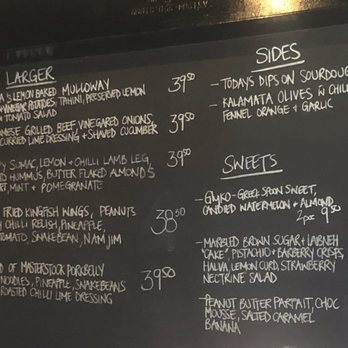 LARGER
& LEMON BAKED MULLOWAY 39.50
VINEGAR POTATOES, TAHINI, PRESERVED LEMON
+ TOMATO SALAD
GRILLED BEEF, VINEGARED ONIONS, 39.50
CURRIED LIME DRESSING + SHAVED CUCUMBER
SUMAC, LEMON + CHILLI LAMB LEG, 39.50
HUMMUS, BUTTER, FLAKED ALMONDS
MINT + POMEGRANATE
FRIED KINGFISH WINGS, PEANUTS 38.50
CHILLI RELISH, PINEAPPLE,
SNAKEBEAN, NAM JIM
OF MASTERSTOCK PORK BELLY 39.50
NOODLES, PINEAPPLE, SNAKEBEANS
ROASTED CHILLI LIME DRESSING
SIDES
- TODAYS DIPS ON SOURDOUG
- KALAMATA OLIVES IN CHILLI
FENNEL ORANGE + GARLIC
SWEETS
- GLYKO - GREEK SPOON SWEET,
CANDIED WATERMELON + ALMOND
2pc 9.50
- MARBLED BROWN SUGAR + LABNEH
"CAKE", PISTACHIO + BARBERRY CRISPS
HALVA, LEMON CURD, STRAWBERRY
NECTRINE SALAD
- PEANUT BUTTER PARFAIT, CHOC
MOUSSE, SALTED CARAMEL
BANANA